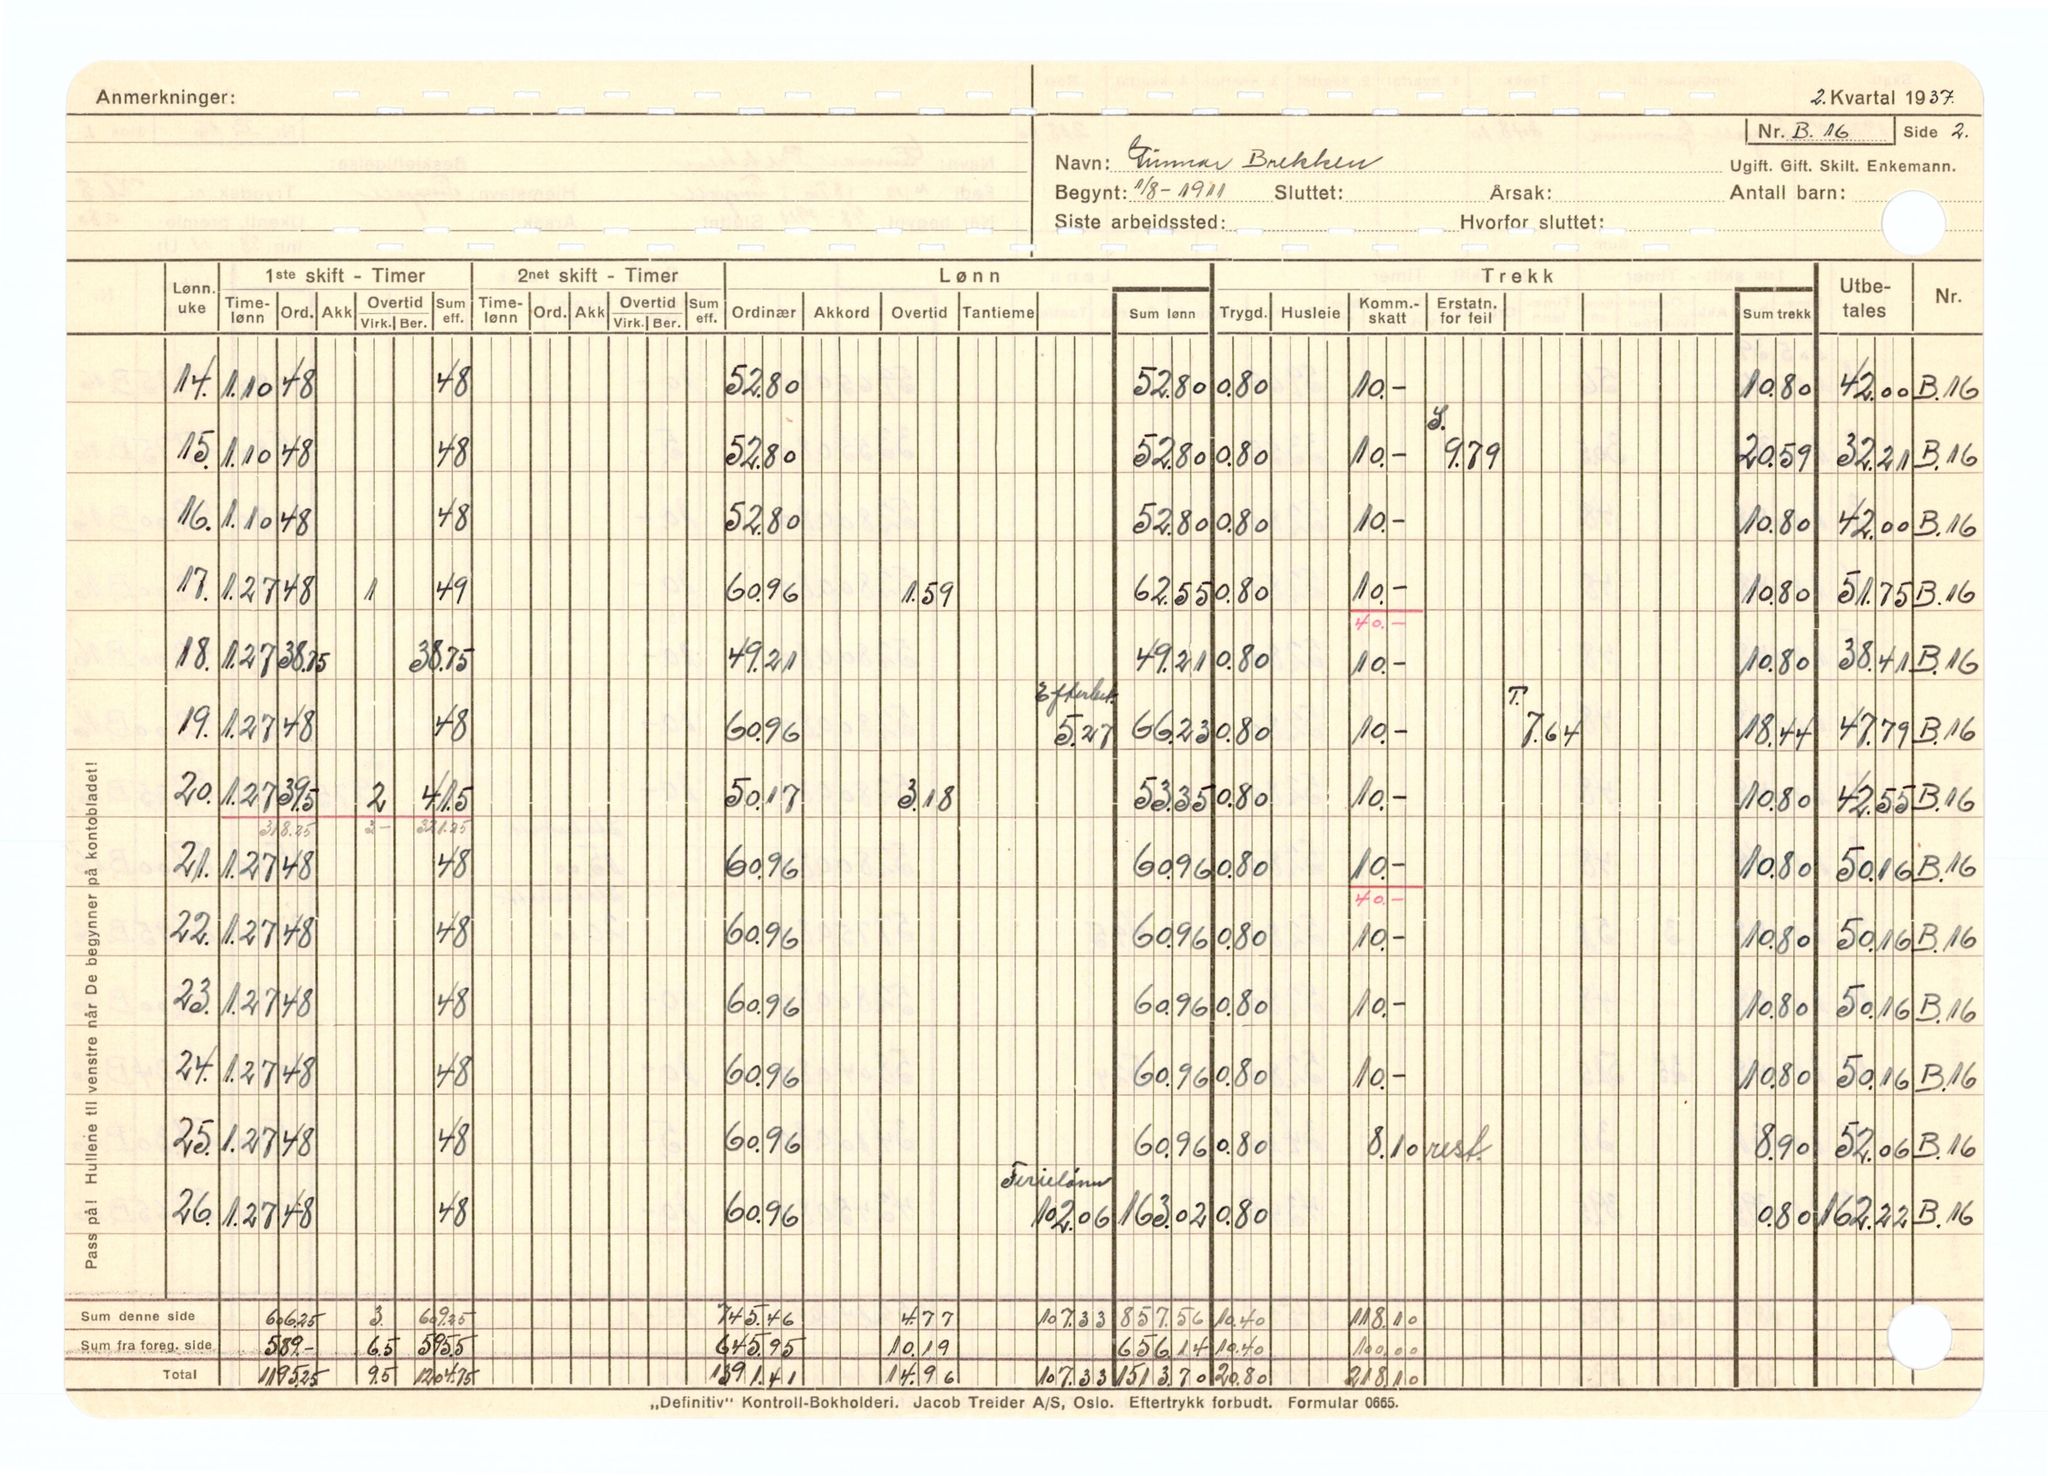 Anmerkninger:
2. Kvartal 1937.
Nr. B. 16 Side 2.
Navn: Gunnar Brekken Ugift. Gift. Skilt. Enkemann.
Begynt: 1/8-1911 Sluttet: Årsak: Antall barn:
Siste arbeidssted: Hvorfor sluttet:
Lønn. uke 1ste skift - Timer 2net skift - Timer Lønn Trekk Utbe- tales Nr.
Time- lønn Ord. Akk Overtid Virk. Ber. Sum eff. Time- lønn Ord. Akk Overtid Virk. Ber. Sum eff. Ordinær Akkord Overtid Tantieme Sum lønn Trygd. Husleie Komm.- skatt Erstatn. for feil Sum trekk
14. 1.10 48 48 52.80 52.80 0.80 10.- 10.80 42.00 B.16
15. 1.10 48 48 52.80 52.80 0.80 10.- 9.79 20.59 32.21 B.16
16. 1.10 48 48 52.80 52.80 0.80 10.- 10.80 42.00 B.16
17. 1.27 48 1 49 60.96 1.59 62.55 0.80 10.- 10.80 51.75 B.16
40.-
18. 1.27 38.75 38.75 49.21 49.21 0.80 10.- 10.80 38.41 B.16
T.
19. 1.27 48 48 60.96 5.27 66.23 0.80 10.- 7.64 18.44 47.79 B.16
20. 1.27 39.5 2 41.5 50.17 3.18 53.35 0.80 10.- 10.80 42.55 B.16
318.25 3- 321.25
21. 1.27 48 48 60.96 60.96 0.80 10.- 10.80 50.16 B.16
40.-
22. 1.27 48 48 60.96 60.96 0.80 10.- 10.80 50.16 B.16
23. 1.27 48 48 60.96 60.96 0.80 10.- 10.80 50.16 B.16
24. 1.27 48 48 60.96 60.96 0.80 10.- 10.80 50.16 B.16
25. 1.27 48 48 60.96 60.96 0.80 8.10 rest. 8.90 52.06 B.16
Ferielønn
26. 1.27 48 48 60.96 102.06 163.02 0.80 0.80 162.22 B.16
Sum denne side 606.25 3. 609.25 745.46 4.77 107.33 857.56 10.40 118.10
Sum fra foreg. side 589.- 6.5 595.5 645.95 10.19 656.14 10.40 100.00
Total 1195.25 9.5 1204.75 1391.41 14.96 107.33 1513.70 20.80 218.10
„Definitiv" Kontroll-Bokholderi. Jacob Treider A/S, Oslo. Eftertrykk forbudt. Formular 0665.
Pass på! Hullene til venstre når De begynner på kontobladet!